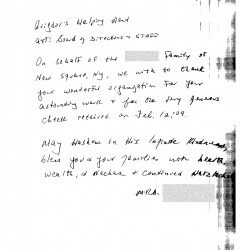 Avigdor's Helping Hand
ATT: Board of Directors & STAFF
On behalf of the Family of
New Square, NY, we wish to thank
your wonderful organization for your
astounding work & for the very generous
check received on Feb. 12, 09.
May Hashem in his infinite
bless you & your families with health,
wealth, & Nachas & continued Hatzlacha
MRS.